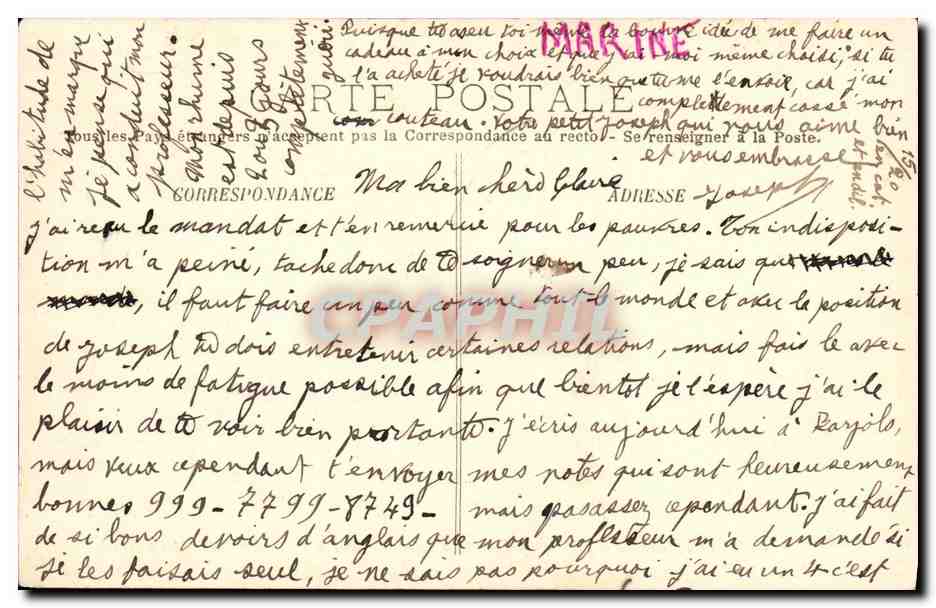 MARINE
CARTE POSTALE
Tous les Pays étrangers n'acceptent pas la Correspondance au recto. - Se renseigner à la Poste.
CORRESPONDANCE
ADRESSE
Ma bien chère Claire
j'ai reçu le mandat et t'en remercie pour les pauvres. Ton indisposi-
tion m'a peiné, tache donc de te soigner un peu, je sais que
, il faut faire un peu comme tout le monde et avec la position
de Joseph tu dois entretenir certaines relations, mais fais le avec
le moins de fatigue possible afin que bientot je l'espère j'ai le
plaisir de te voir bien portante. J'écris aujourd'hui à
mais veux cependant t'envoyer mes notes qui sont heureusement
bonnes 999 - 7799 - 8749 - mais pas assez cependant. J'ai fait
de si bons devoirs d'anglais que mon professeur m'a demandé si
je les faisais seul, je ne sais pas pourquoi j'ai eu un 4 c'est
l'habitude de
m'en marque
je pense qui
a conduit mon
professeur.
Mon rhume
est depuis
jours
completement
guéri
Puisque tu as eu toi même la bonne idée de me faire un
cadeau à mon choix et que j'ai moi même choisi, si tu
l'a acheté je voudrais bien que tu me l'envoie, car j'ai
completement cassé mon
couteau. Votre petit Joseph qui vous aime bien
et vous embrasse
Joseph
15/20
en cat
et
CPAPHIL